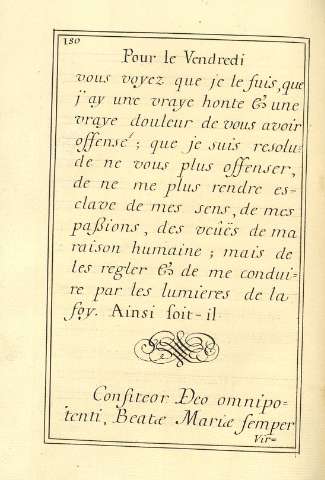 180
Pour le Vendredi
vous voyez que je le suis, que
j'ay une vraye honte & une
vraye douleur de vous avoir
offensé; que je suis resolu-
de ne vous plus offenser,
de ne me plus rendre es-
clave de mes sens, de mes
paſsions, des veües de ma
raison humaine; mais de
les regler & de me condui-
re par les lumieres de la
foy. Ainsi soit-il.
Confiteor Deo omnipo-
tenti, Beatæ Mariæ ſemper
Vir=